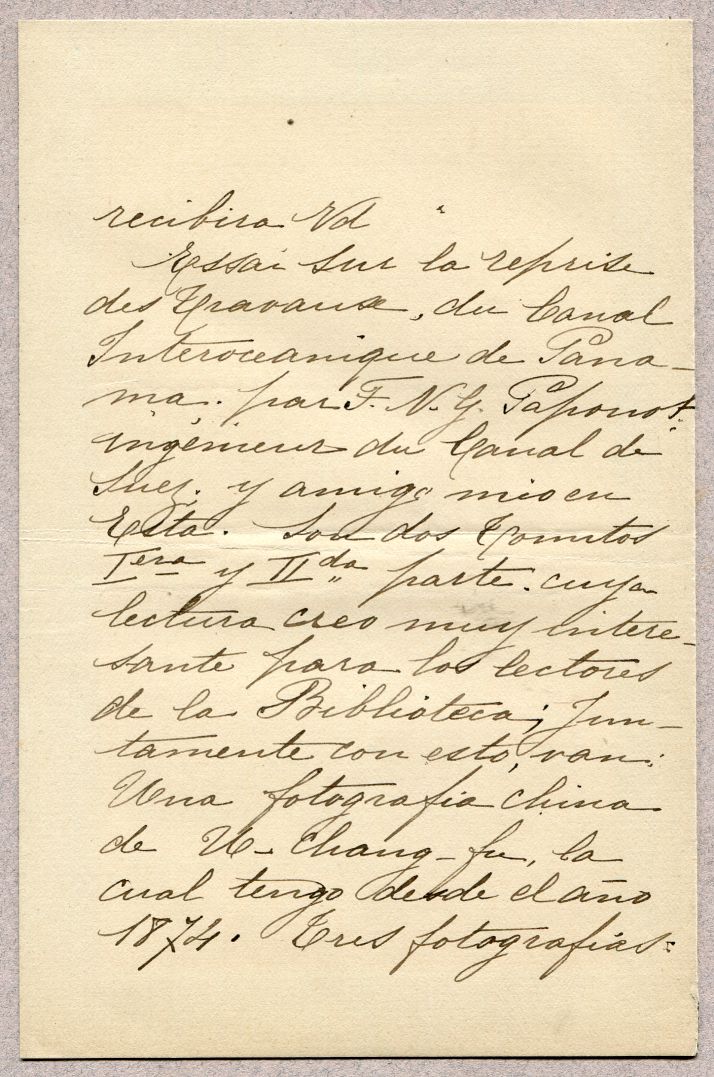 recibira Vd "
Essai sur la reprise
des Travaux, du Canal
Interoceanique de Pana-
ma. par F. N. G. Paponot
ingénieur du Canal de
Suez. y amigo mio en
Esta. Son dos Tomitos
Iera y IIda parte. cuya
lectura creo muy intere-
sante para los lectores
de la Biblioteca; Jun-
tamente con esto, van:
Una fotografia china
de U-Chang-fu, la
cual tengo desde el año
1874. Tres fotografias: